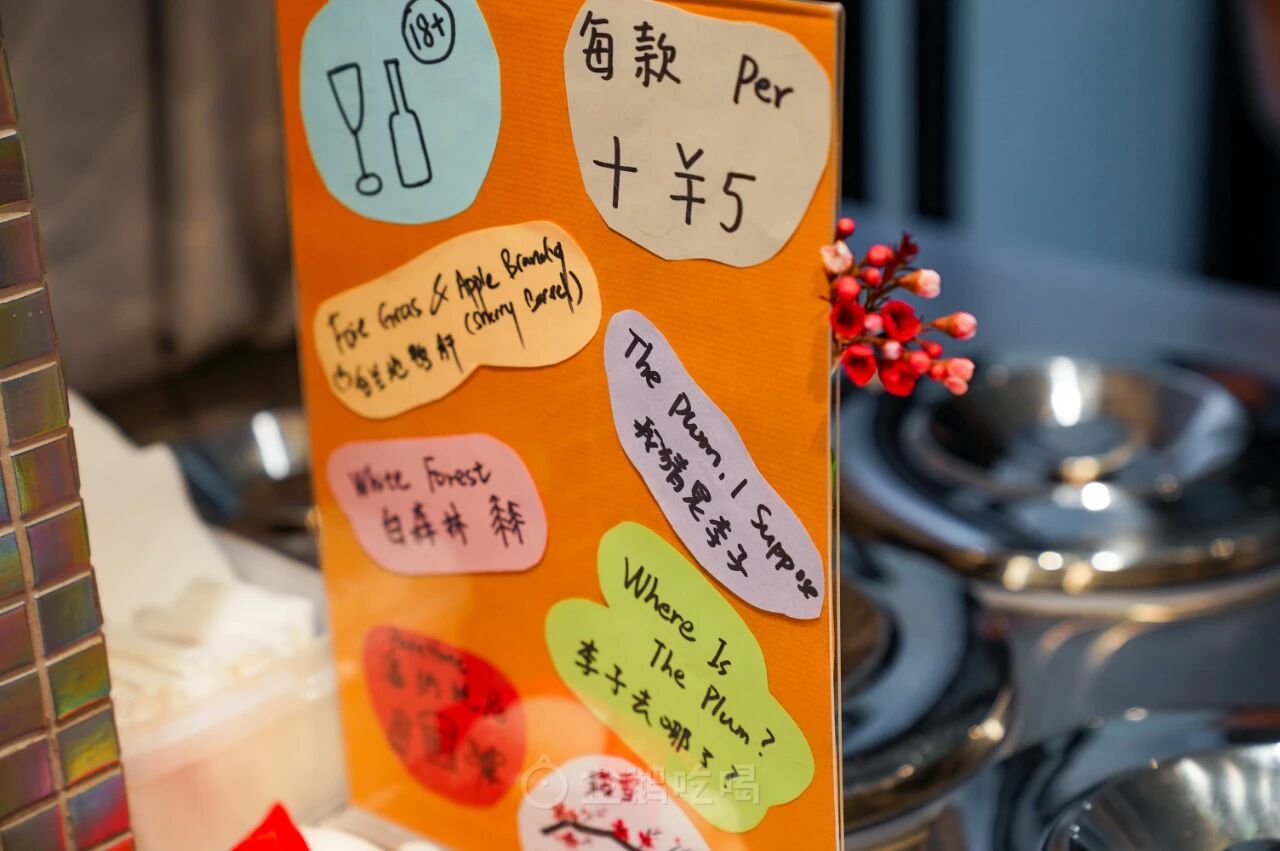 18+
每款 Per
+ ¥5
Foie Gras & Apple Brandy
(Sherry Barrel)
White Forest
白森林
The Plum, I Suppose
我猜是李子
Where Is
The Plum?
李子去哪了?
鹅吃喝